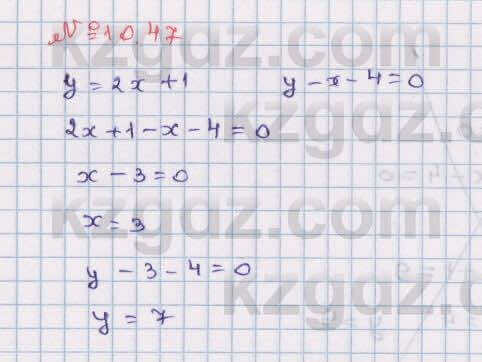 № 1047
y = 2x + 1     y - x - 4 = 0
2x + 1 - x - 4 = 0
x - 3 = 0
x = 3
y - 3 - 4 = 0
y = 7
kzgdz.com
kzgdz.com
kzgdz.com
kzgdz.com